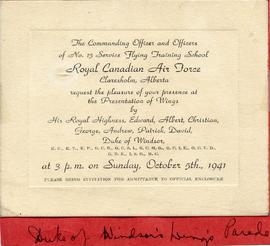 The Commanding Officer and Officers
of No. 15 Service Flying Training School
Royal Canadian Air Force
Claresholm, Alberta
request the pleasure of your presence at
the Presentation of Wings
by
His Royal Highness, Edward, Albert, Christian,
George, Andrew, Patrick, David,
Duke of Windsor,
at 3 p.m. on Sunday, October 5th, 1941
PLEASE BRING INVITATION FOR ADMITTANCE TO OFFICIAL ENCLOSURE
Duke of Windsor's Wings Parade